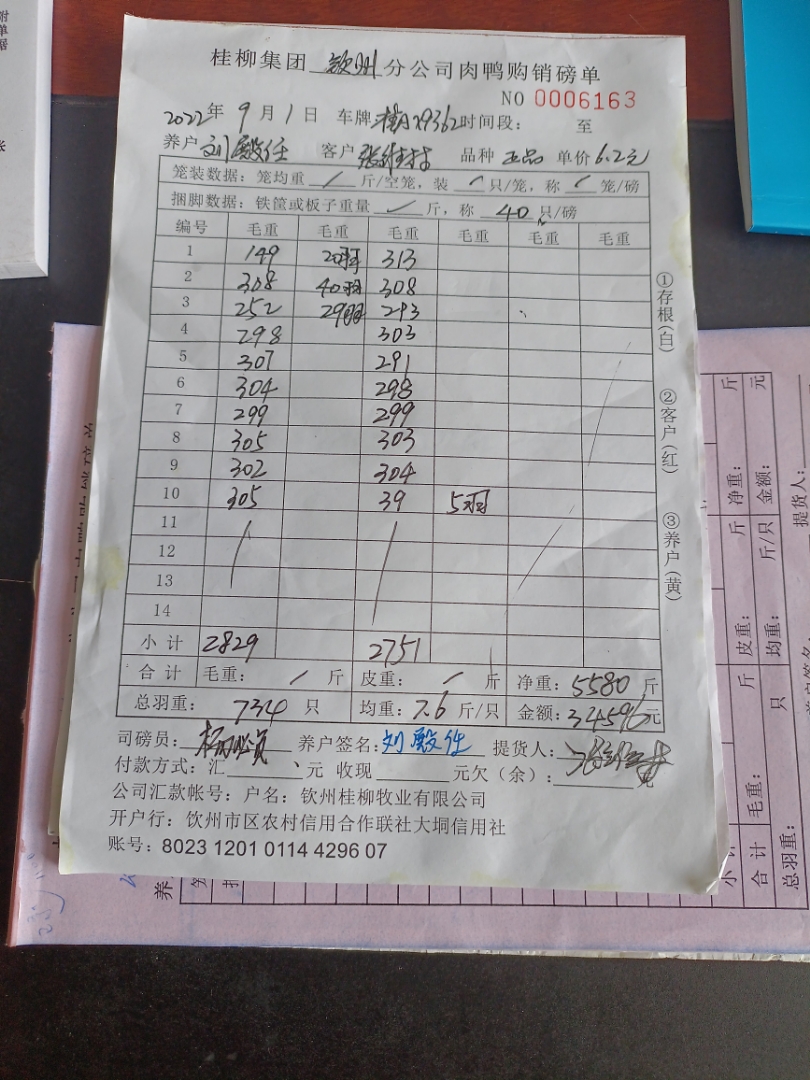 桂柳集团 钦州 分公司肉鸭购销磅单
NO 0006163
2022年 9月 1日 车牌: 时间段: 至
养户 刘殿任 客户 品种 正品 单价 6.2元
笼装数据: 笼均重 / 斤/空笼, 装 / 只/笼, 称 / 笼/磅
捆脚数据: 铁筐或板子重量 / 斤, 称 40 只/磅
编号 毛重 毛重 毛重 毛重 毛重 毛重
1 149 20羽 313
2 308 40羽 308
3 252 29羽 293
4 298 303
5 307 291
6 304 298
7 299 299
8 305 303
9 302 304
10 305 39 5羽
11
12
13
14
小计 2829 2751
合计 毛重: / 斤 皮重: / 斤 净重: 5580 斤
总羽重: 734 只 均重: 7.6 斤/只 金额: 34596元
司磅员: 养户签名: 刘殿任 提货人:
付款方式: 汇 、元 收现 元欠(余): 元
公司汇款帐号: 户名: 钦州桂柳牧业有限公司
开户行: 钦州市区农村信用合作联社大垌信用社
账号: 8023 1201 0114 4296 07
①存根(白)
②客户(红)
③养户(黄)
斤 元
净重: 金额:
提货人:
斤 斤/只
皮重: 均重:
斤 只
毛重:
小计 合计 总羽重: